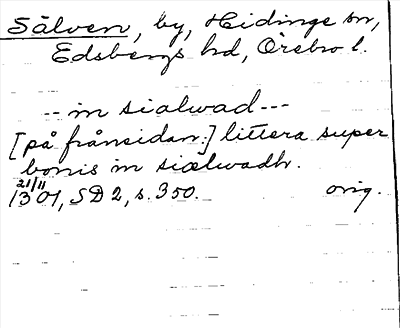 Sälven, by, Hidinge sn,
Edsbergs hd, Örebro l.
-- in sialwad ---
[på frånsidan:] littera super
bonis in siælwadh.
21/11
1301, SD 2, s. 350. orig.